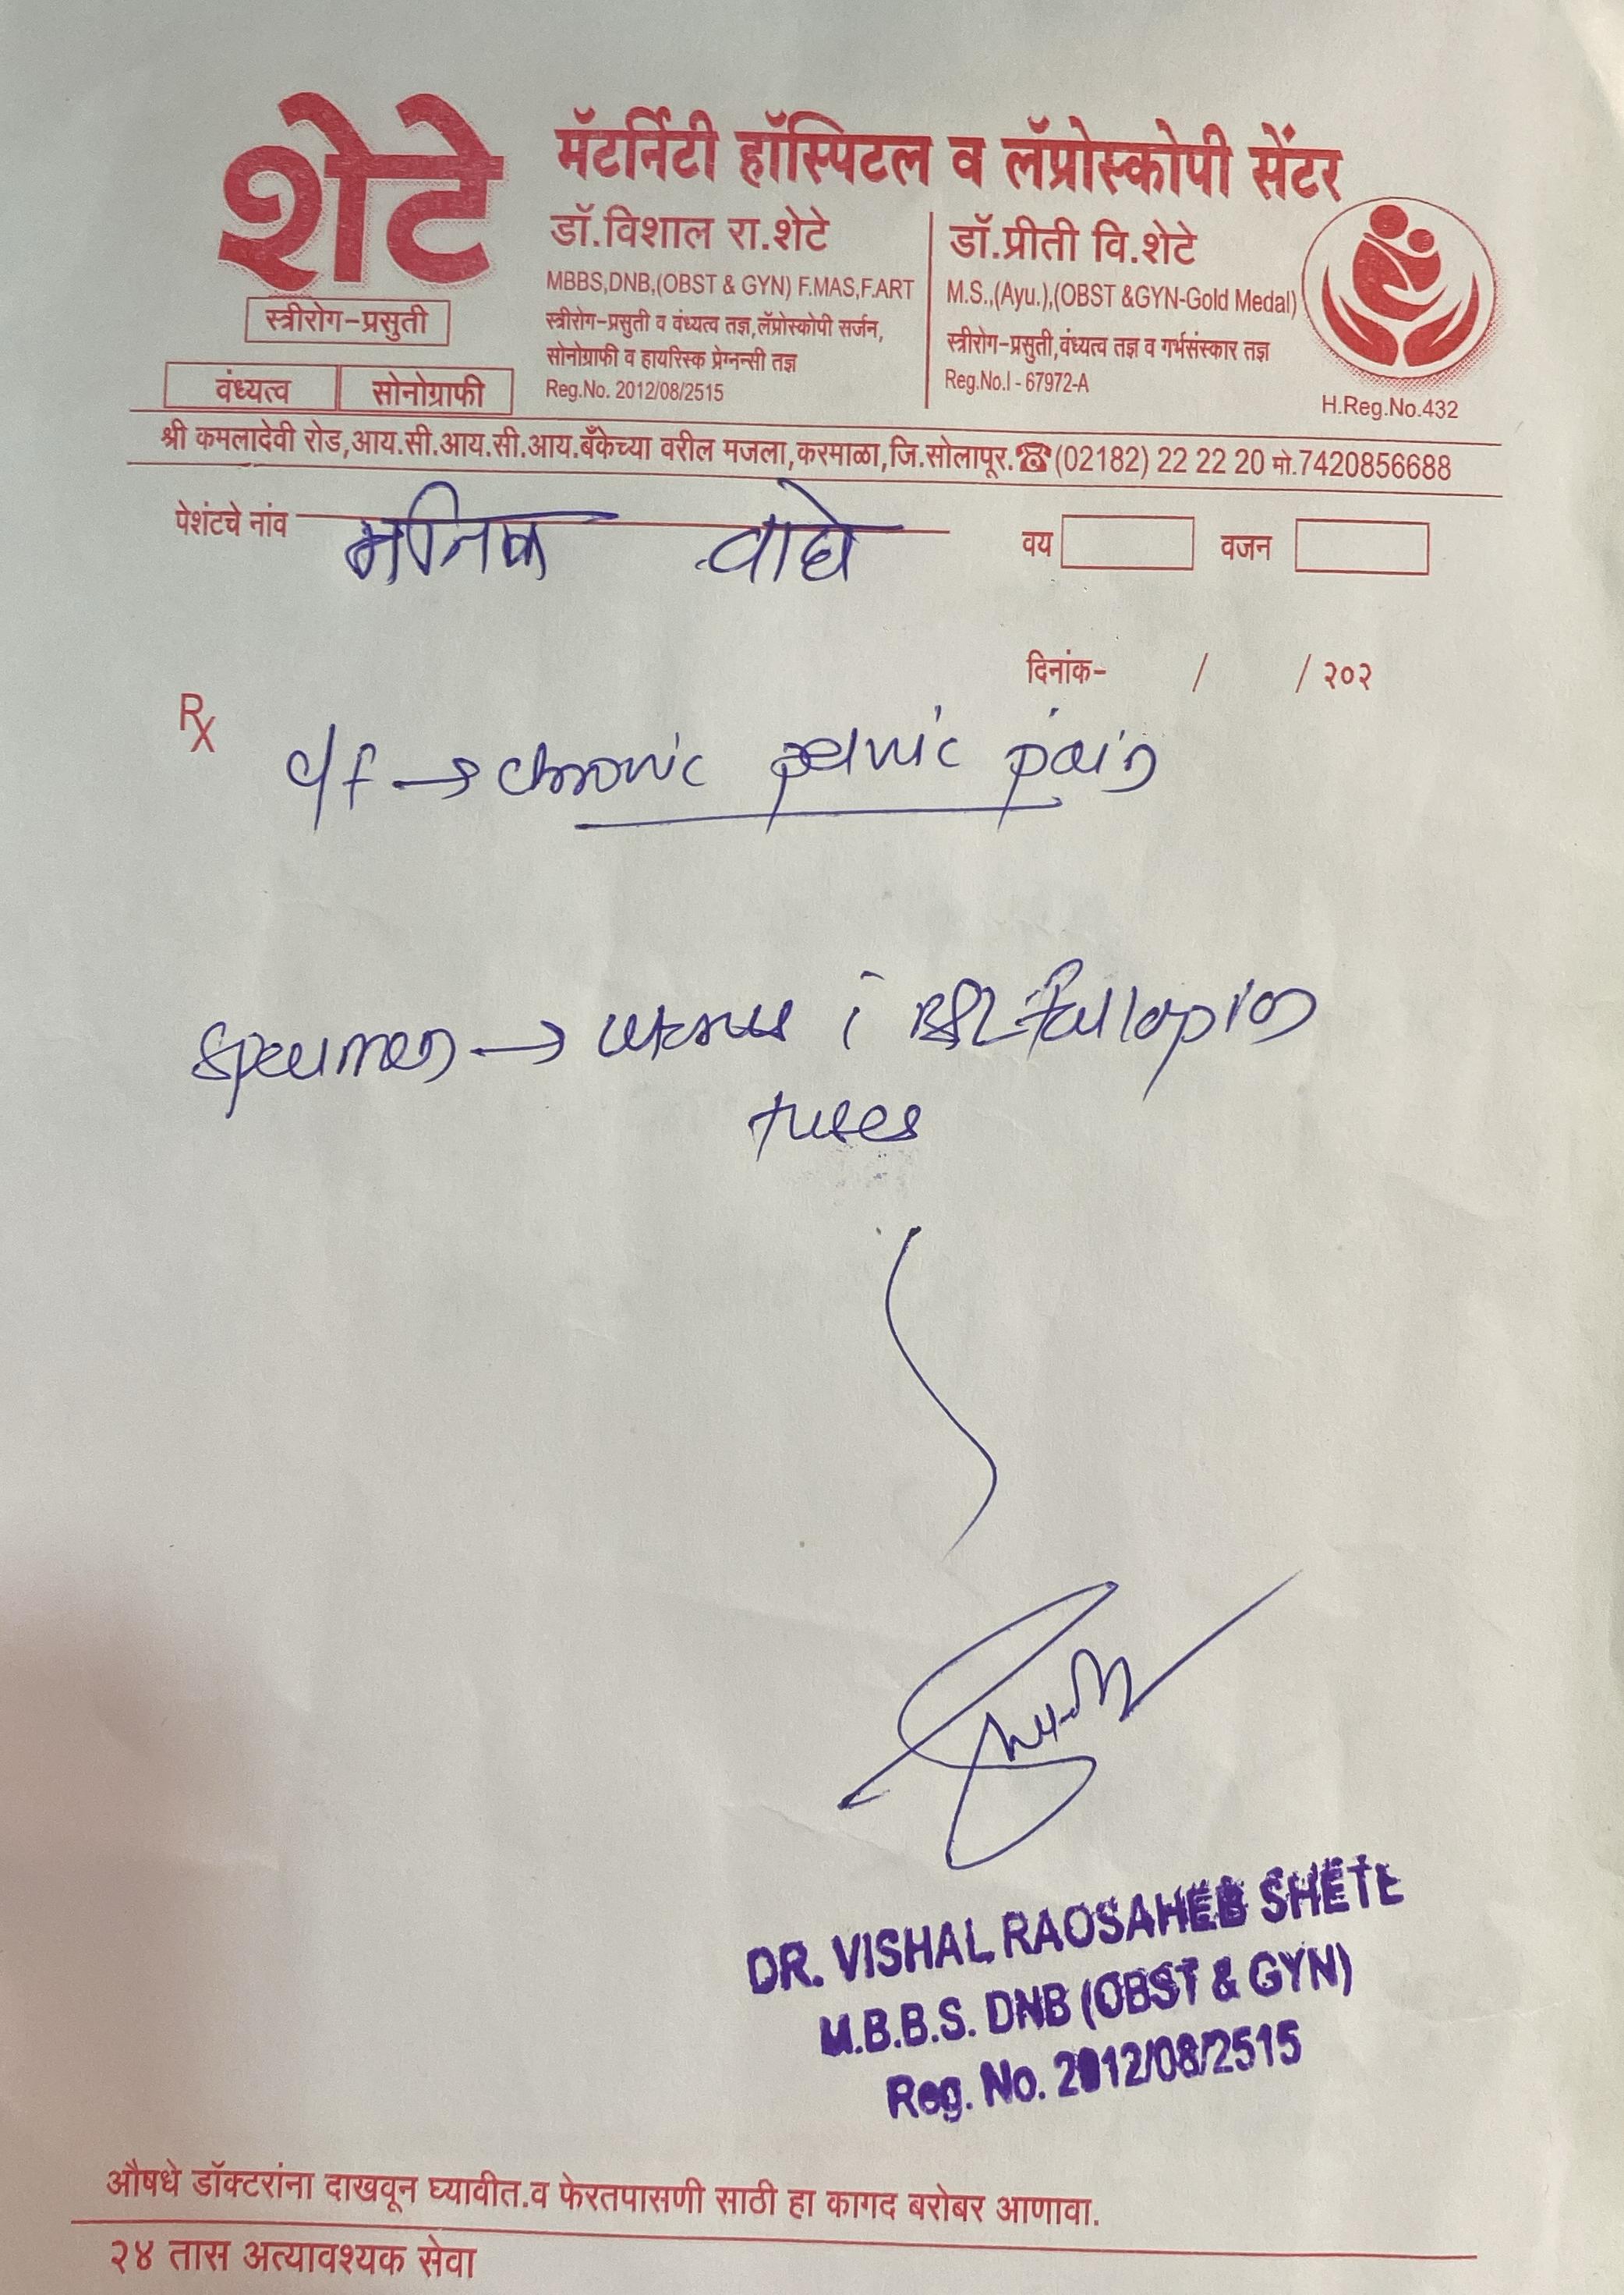 शेटे
मॅटर्निटी हॉस्पिटल व लॅप्रोस्कोपी सेंटर
स्त्रीरोग-प्रसुती
वंध्यत्व सोनोग्राफी
डॉ.विशाल रा.शेटे
MBBS,DNB,(OBST & GYN) F.MAS,F.ART
स्त्रीरोग-प्रसुती व वंध्यत्व तज्ञ,लॅप्रोस्कोपी सर्जन,
सोनोग्राफी व हायरिस्क प्रेग्नन्सी तज्ञ
Reg.No. 2012/08/2515
डॉ.प्रीती वि.शेटे
M.S.,(Ayu.),(OBST &GYN-Gold Medal)
स्त्रीरोग-प्रसुती,वंध्यत्व तज्ञ व गर्भसंस्कार तज्ञ
Reg.No.I - 67972-A
H.Reg.No.432
श्री कमलादेवी रोड,आय.सी.आय.सी.आय.बँकेच्या वरील मजला,करमाळा,जि.सोलापूर.☎(02182) 22 22 20 मो.7420856688
पेशंटचे नांव वाघे वय वजन
दिनांक- / / २०२
Rx
c/f → chronic pelvic pain
specimen → uterus c̄ B/L fallopian
tubes
DR. VISHAL RAOSAHEB SHETE
M.B.B.S. DNB (OBST & GYN)
Reg. No. 2012/08/2515
औषधे डॉक्टरांना दाखवून घ्यावीत.व फेरतपासणी साठी हा कागद बरोबर आणावा.
२४ तास अत्यावश्यक सेवा